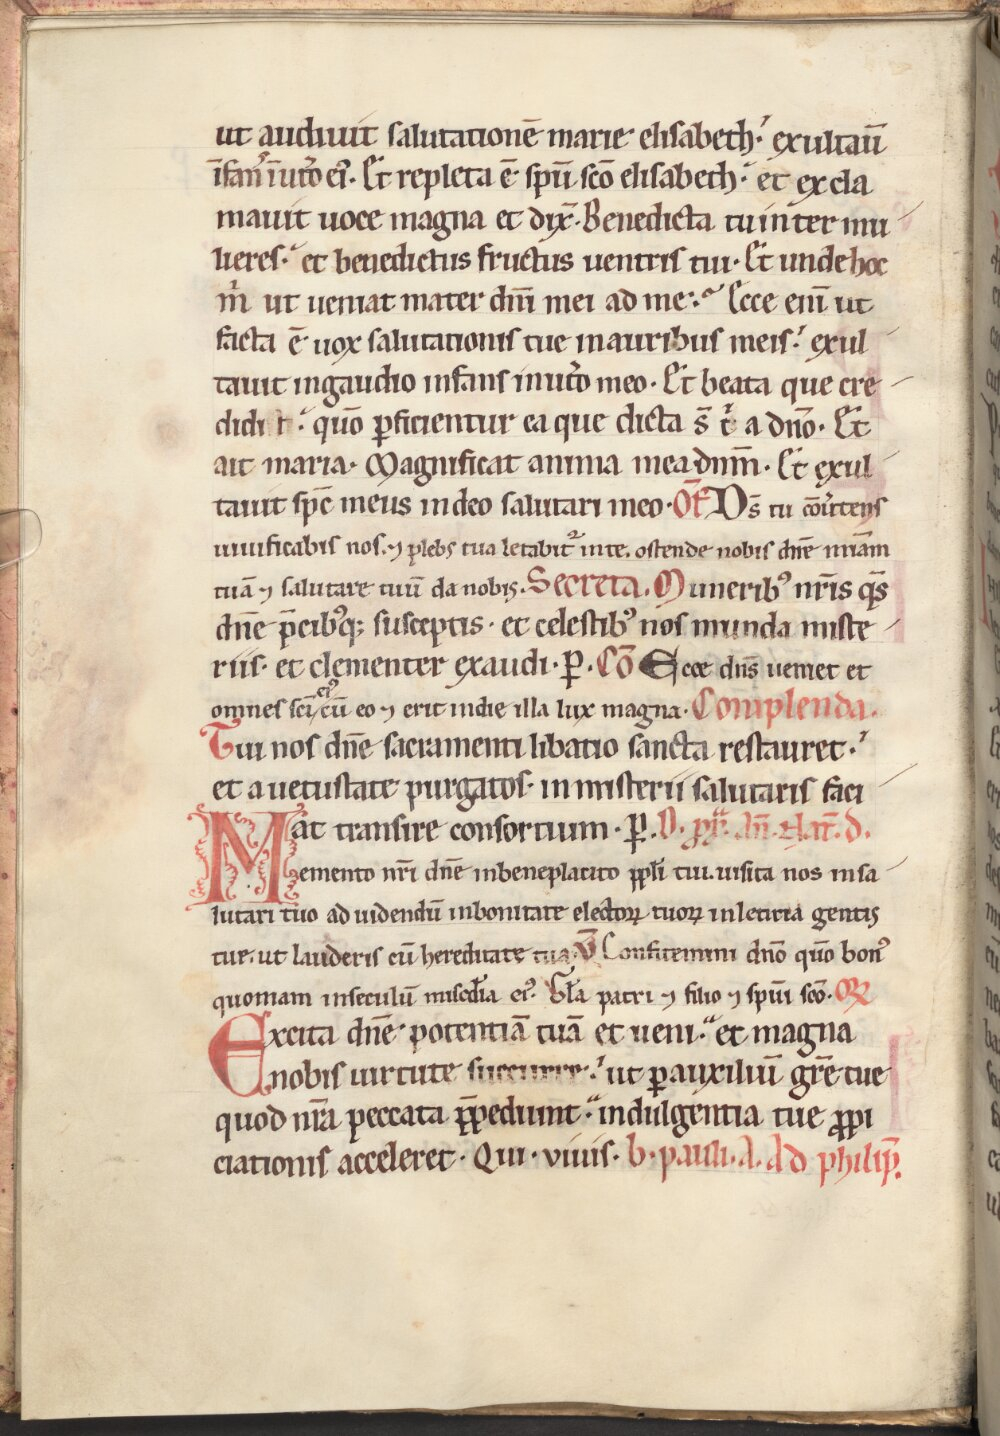 ut audiuit salutationē marie elisabeth· exultauı̄
ı̄fanˀ ı̄ut̾o eıˀ· Et repleta ē spū scō elisabeth· et excla
mauit uoce magna et dix̄· Benedicta tu inter mu
lieres· et benedictus fructus uentris tui· Et unde hoc
m̊ ut ueniat mater dn̄i mei ad me· Ecce enı̄ ut
facta ē uox salutationis tue in auribus meis· exul
tauit in gaudio infans in ut̾o meo· Et beata que cre
didit· quō ꝑficientur ea que dicta s̄ t̾ a dn̄o· Et
ait maria· Magnificat anima mea dnm̄· Et exul
tauit sp̄c meus in deo salutari meo· Of̄ Ds̄ tu cōu̾tens
uiuificabis nos· ⁊ plebs tua letabit̾ in te. ostende nobis dn̄e mı̄am
tuā ⁊ salutare tuū da nobis. Secreta. Munerib̾ nr̄is qs̄
dn̄e p̄cib̾q; susceptis· et celestib̾ nos munda miste
riis· et clementer exaudi· P. Cō Ecce dn̄s ueniet et
omnes scı̄ eıˀ cū eo ⁊ erit in die illa lux magna. Complenda.
Tui nos dn̄e sacramenti libatio sancta restauret·
et a uetustate purgatos· in misterii salutaris faci
at transire consortium· P. D.
Memento nr̄i dn̄e in beneplacito ppl̄i tui. uisita nos in sa
lutari tuo ad uidendū in bonitate electoꝝ tuoꝝ in leticia gentis
tue. ut lauderis cū hereditate tua. V̄ Confitemini dn̄o quō bonˀ
quoniam in seculū misc̄dia eıˀ. Gl̄a patri ⁊ filio ⁊ spı̄ui scō. OR
Excita dn̄e potentiā tuā et ueni· et magna
nobis uirtute succurre· ut ꝑ auxiliū gr̄e tue
quod nr̄a peccata p̄pediunt· indulgentia tue ꝓpi
ciationis acceleret· Qui· uiuis· b· pauli. A. Ad philip̄.